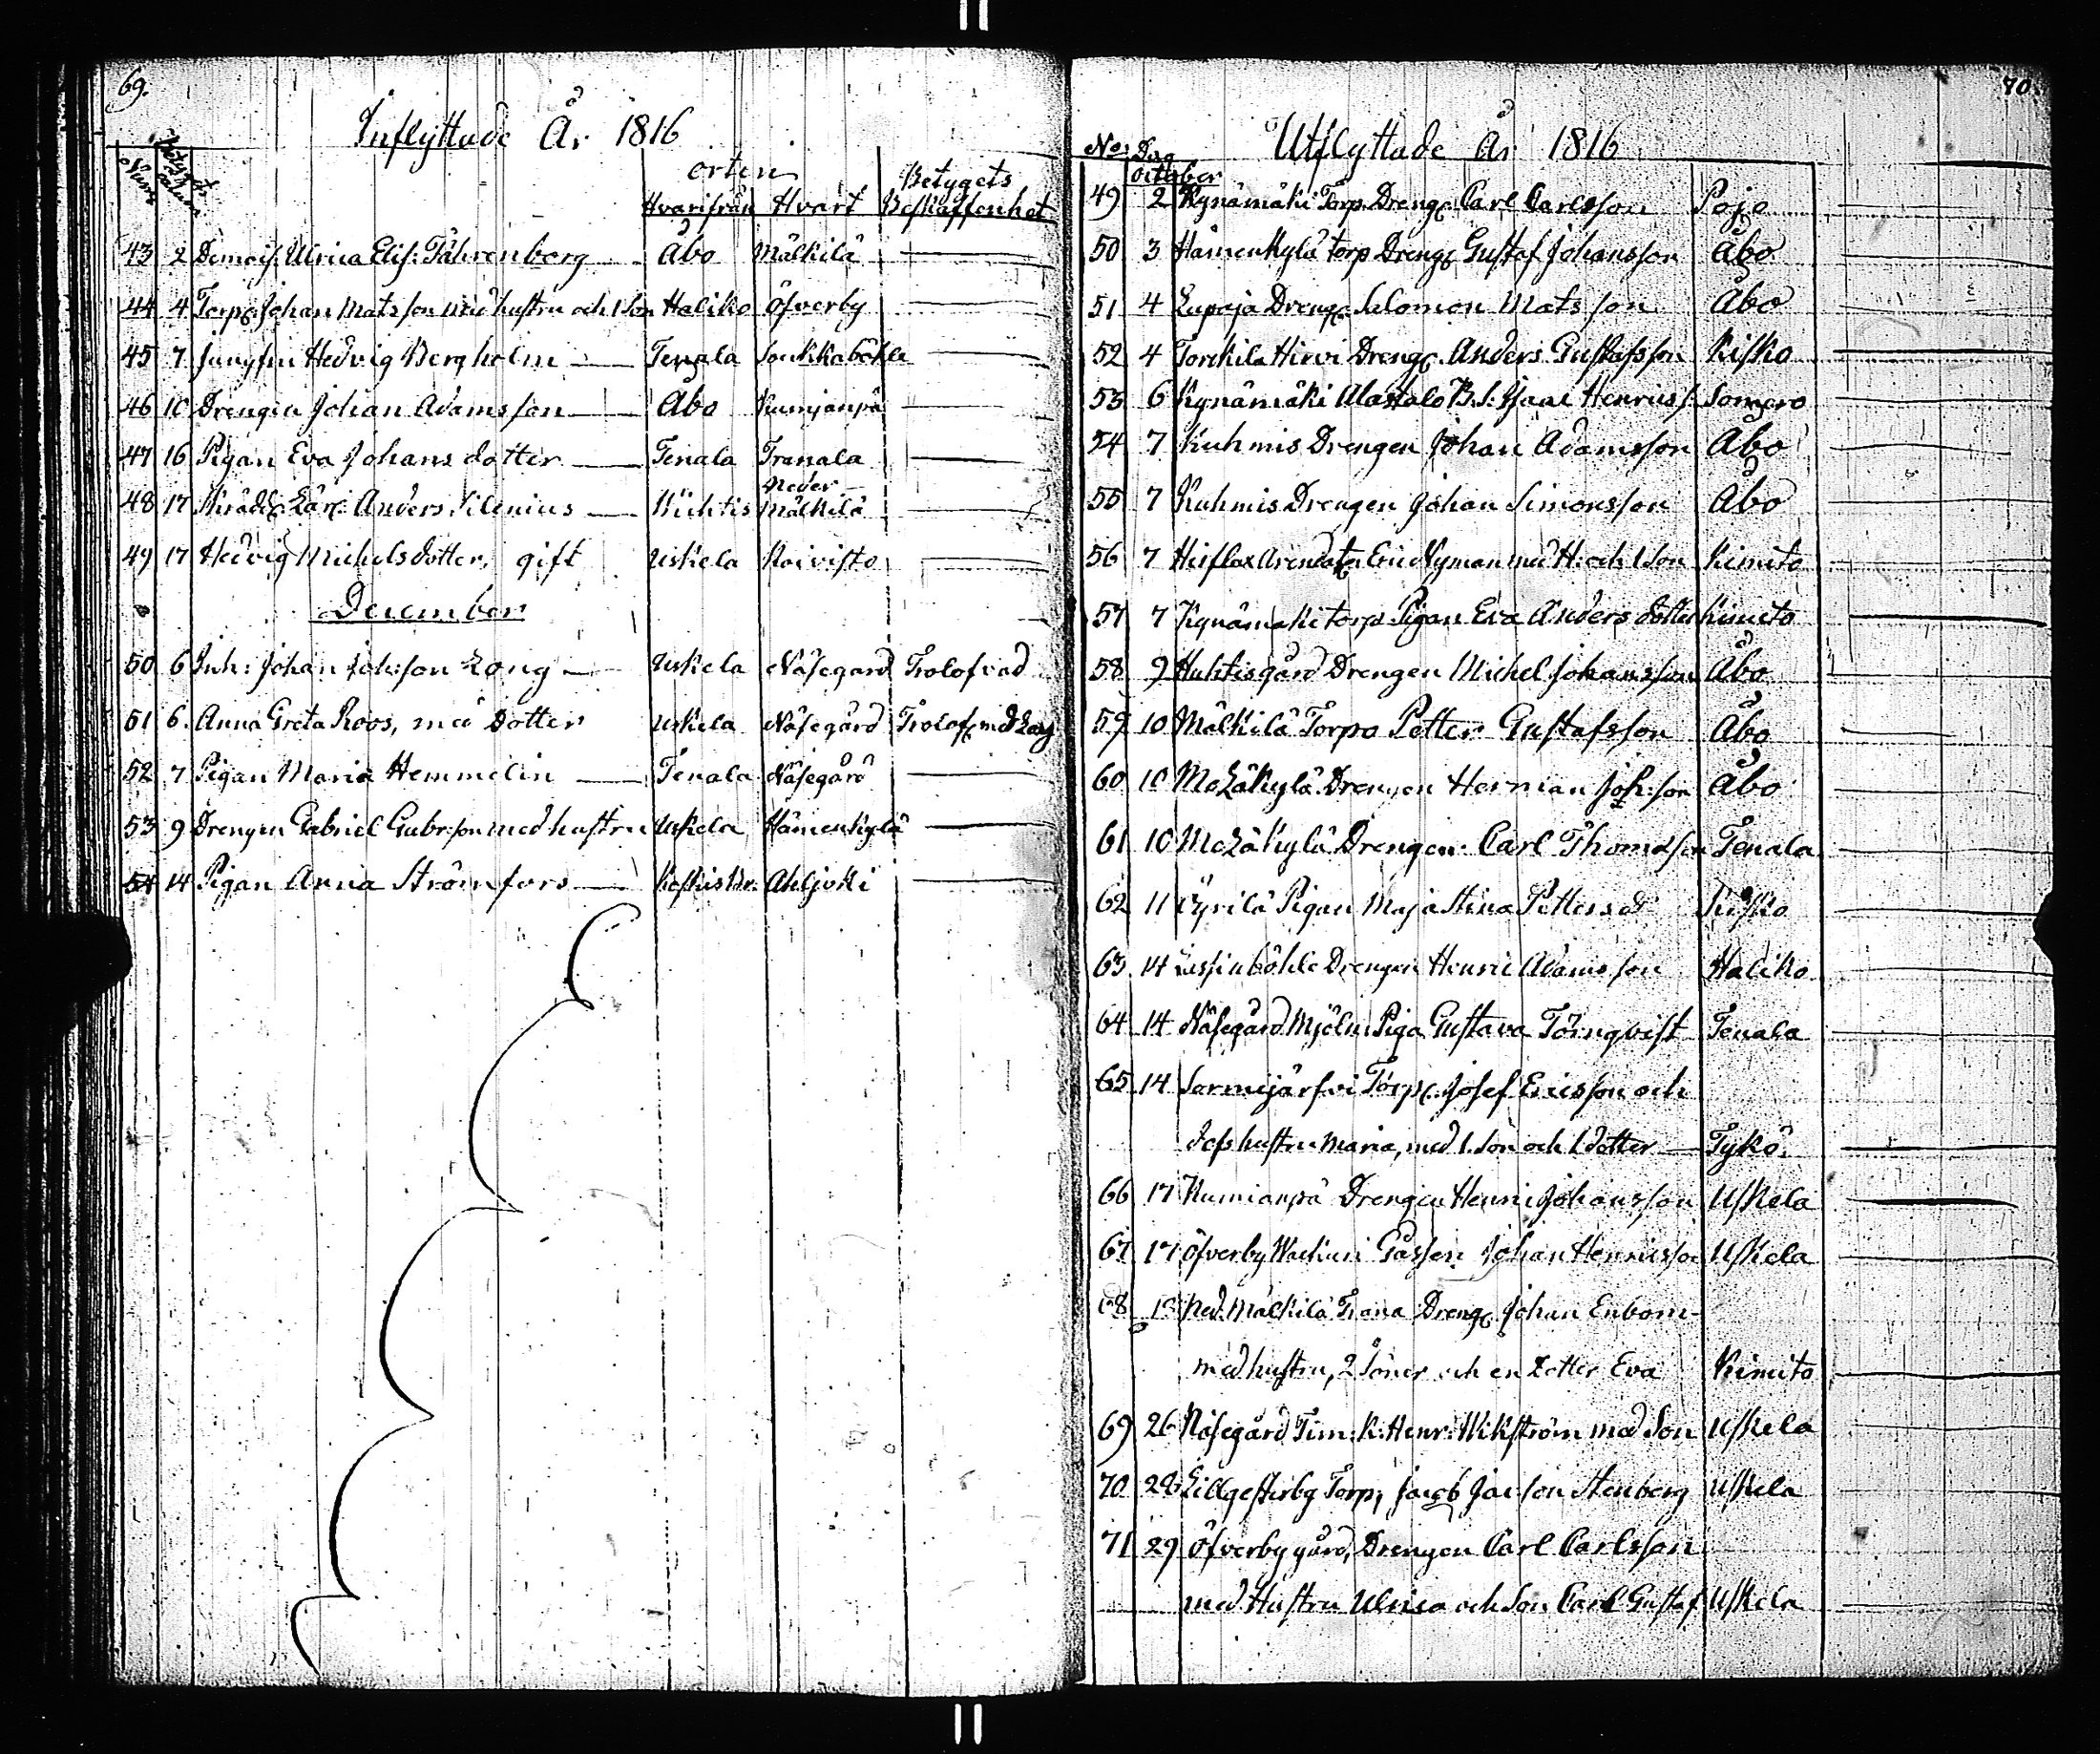 69.
Inflyttade År 1816
Num
orten
Betygets
Hvarifrån Hvart Beskaffenhet
43 2 Demois: Ulrica Elis: Fåhrenberg Åbo Mälkilä
44 4 Torp: Johan Matsson med hustru och 1 Son Haliko Öfverby
45 7 Jungfru Hedvig Bergholm Tenala
46 10 Drengen Johan Adamsson Åbo Kumjanpä
47 16 Pigan Eva Johans dotter Tenala Tranala
Neder
48 17 Skrädd: Lärl: Anders Silenius Wichtis Mälkilä
49 17 Hedvig Michelsdotter, gift Uskela Koivisto
December
50 6 Inh: Johan Joh:son Long Uskela Näsegård Trolofvad
51 6. Anna Greta Roos, med Dotter Uskela Näsegård Trolof: med Long
52 7 Pigan Maria Hemmelin Tenala Näsegård
53 9 Drengen Gabriel Gabr:son med hustru Uskela Hämenkylä
54 14 Pigan Anna Strömfors Ahljoki
70.
Utflyttade År 1816
No: Dag
October
49 2 Kynämäki Torp. Dreng: Carl Carlsson Pojo
50 3 Hämenkylä torp Dreng: Gustaf Johansson Åbo
51 4 Lupaja Dreng: Salomon Matsson Åbo
52 4 Torkila Hirvi Dreng: Anders Gustafsson Kisko
53 6 Kynämäki Alastalo B.S: Isaac Henrics: Somero
54 7 Kuhmis Drengen Johan Adamsson Åbo
55 7 Kuhmis Drengen Johan Simonsson Åbo
56 7 Arendat: Eric Nyman med H: och 1 Son Kimito
57 7 Kynämäki torp Pigan Eva Anders dotter Kimito
58 9 Huhtisgård Drengen Michel Johansson Åbo
59 10 Mälkilä Torpa Petter Gustafsson Åbo
60 10 Drengen Herman Joh:son Åbo
61 10 Drengen Carl Thomasson Tenala
62 11 Cyrilä Pigan Maja Stina Petters dr Kisko
63 14 Drengen Henric Adamsson Haliko
64 14 Näsegård Mjöln: Piga Gustava Törnqvist Tenala
65 14 Sarmijärfvi Torp: Josef Ericsson och
dess hustru Maria, med 1. Son och 1 dotter Tykö.
66 17 Kumianpä Drengen Henric Johansson Uskela
67 17 Öfverby Gossen Johan Henricsson Uskela
68 Ned. Mälkilä Trana Dreng: Johan Enbom
med hustru, 2 Söner och en Dotter Eva Kimito
69 26 Näsegård Tim: K: Henr: Wikström med Son Uskela
70 28 Lillgesterby Torp: Jacob Jac:son Stenberg Uskela
71 29 Öfverby gård, Drengen Carl Carlsson
med Hustru Ulrica och Son Carl Gustaf Uskela